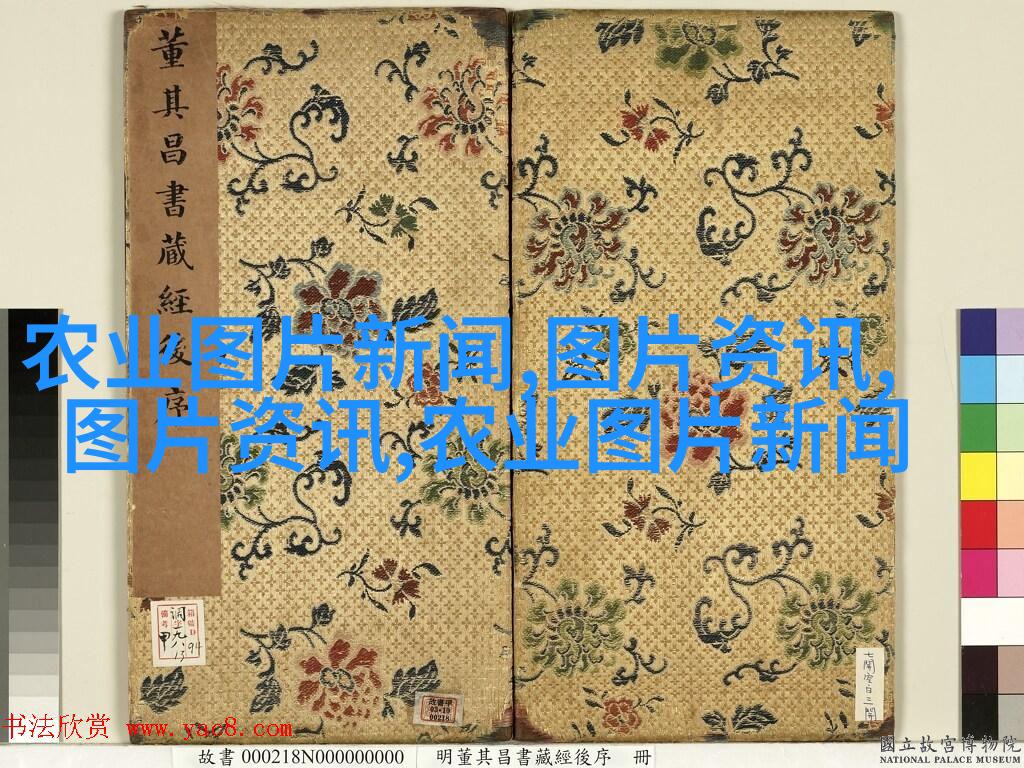 董其昌書藏經後序
农业图片新闻,图片资讯,
图片资讯,农业图片新闻
箱號D
備考
调字九八
13
甲
94
故書甲
03•10
00218
七開空白三開
书法欣赏 www.yac8.com
故書 000218N000000000
明董其昌書藏經後序 冊
國立故宮博物院
NATIONAL PALACE MUSEUM